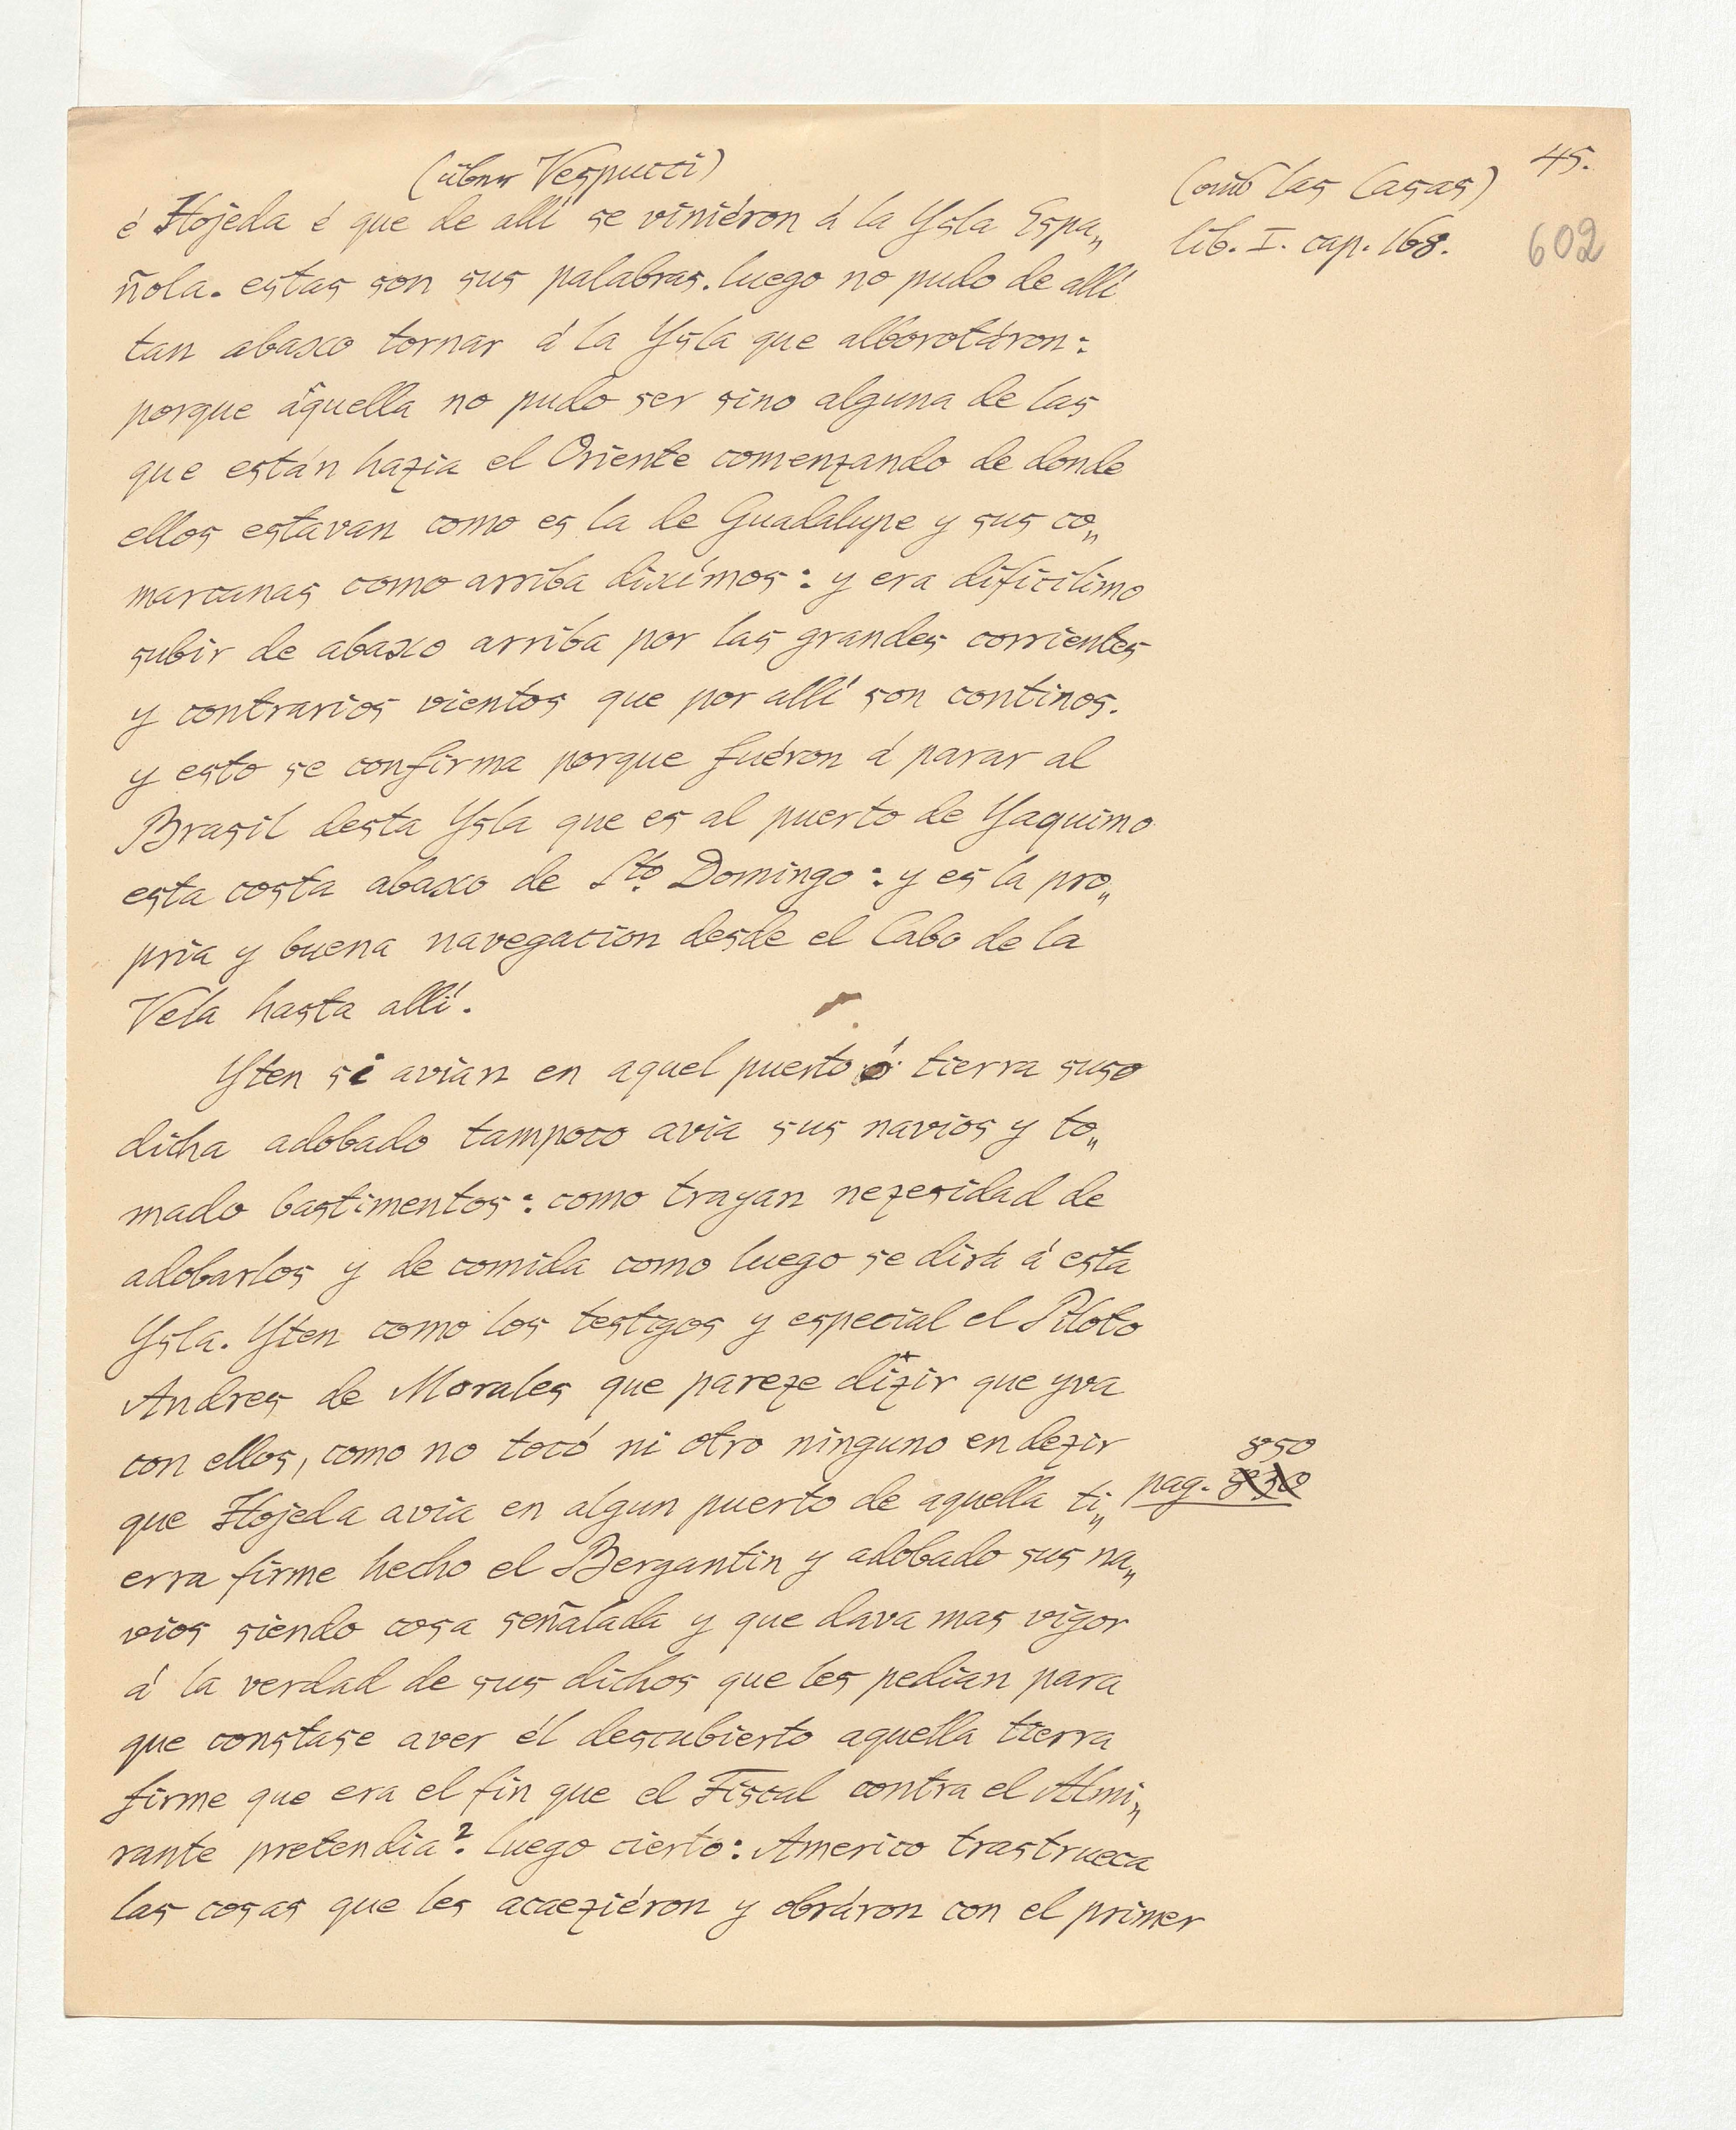 (über Vespucci)
(aus las Casas)
45.
lib. I. cap. 168.
602
é Hojeda é que de allí se viniéron á la Ysla Espa„
ñola. estas son sus palabras. luego no pudo de allí
tan abaxo tornar á la Ysla que alborotáron:
porque âquella no pudo ser sino alguna de las
que están hazia el Oriente comenzando de donde
ellos estavan como es la de Guadalupe y sus co„
marcanas como arriba diximos: y era dificilimo
subir de abaxo arriba por las grandes corrientes
y contrarios vientos que por allí son continos.
y esto se confirma porque fuéron á parar al
Brasil desta Ysla que es al puerto de Yaquimo
esta costa abaxo de Sto. Domingo: y es la pro„
pria y buena navegacion desde el Cabo de la
Vela hasta allí.
Yten si avian en aquel puerto ó tierra suso
dicha adobado tampoco avia sus navios y to„
mado bastimentos: como trayan nezesidad de
adobarlos y de comida como luego se dirá á esta
Ysla. Yten como los testigos y especial el Piloto
Andres de Morales que pareze dizir que yva
con ellos, como no tocó ni otro ninguno en dezir
850
que Hojeda avia en algun puerto de aquella ti„
pag. 830
erra firme hecho el Bergantin y adobado sus na„
vios siendo cosa señalada y que dava mas vigor
á la verdad de sus dichos que les pedian para
que constase aver él descubierto aquella tierra
firme que era el fin que el Fiscal contra el Almi„
rante pretendia? luego cierto: Americo trastrueca
las cosas que les acaeziéron y obráron con el primer